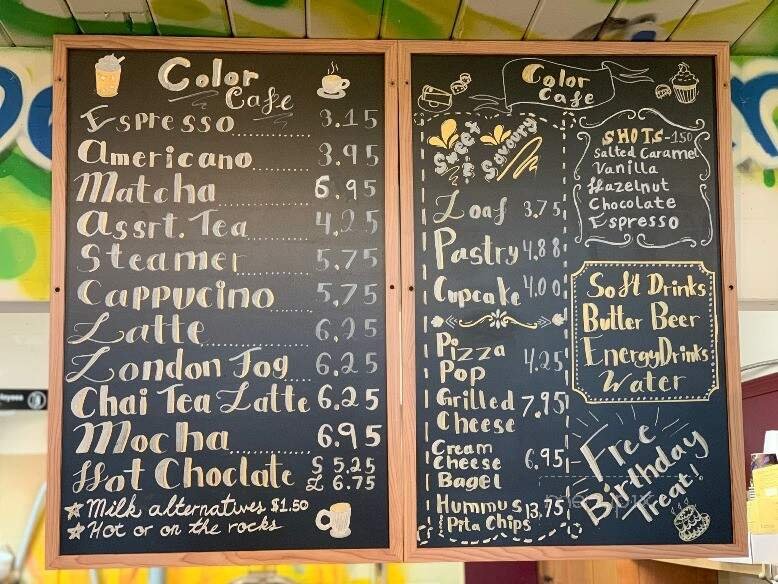 Color
Cafe
Espresso 3.15
Americano 3.95
Matcha 6.95
Assrt. Tea 4.25
Steamer 5.75
Cappucino 5.75
Latte 6.25
London Fog 6.25
Chai Tea Latte 6.25
Mocha 6.95
Hot Choclate S 5.25
L 6.75
Milk alternatives $1.50
Hot or on the rocks
Color
Cafe
Sweet
&
Savoury
Loaf 3.75
Pastry 4.88
Cupcake 4.00
Pizza
Pop 4.25
Grilled
Cheese 7.95
Cream
Cheese
Bagel 6.95
Hummus
Prta Chips 13.75
SHOTS - 1.50
Salted Caramel
Vanilla
Hazelnut
Chocolate
Espresso
Soft Drinks
Butter Beer
Energy Drinks
Water
Free
Birthday
Treat!